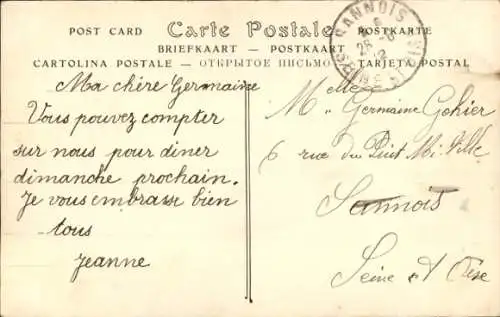 POST CARD Carte Postale POSTKARTE
BRIEFKAART - POSTKAART
CARTOLINA POSTALE - ОТКРЫТОЕ ПИСЬМО - TARJETA POSTAL
SANNOIS
Ma chère Germaine
Vous pouvez compter
sur nous pour diner
dimanche prochain.
Je vous embrasse bien
tous
Jeanne
Melle
Germaine Gohier
6 rue du Puit Mi-Ville
Sannois
Seine et Oise